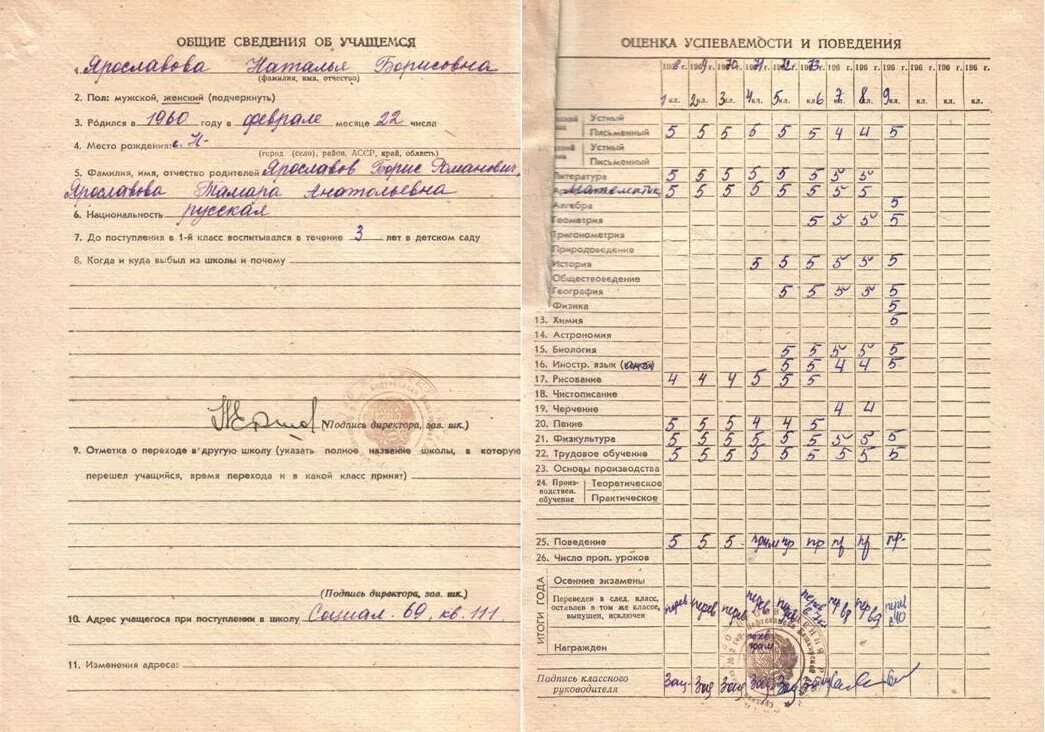 ОБЩИЕ СВЕДЕНИЯ ОБ УЧАЩЕМСЯ
1. Ярославова Наталья Борисовна
(фамилия, имя, отчество)
2. Пол: мужской, женский (подчеркнуть)
3. Родился в 1960 году в феврале месяце 22 числа
4. Место рождения: с. Н-
(город (село), район, АССР, край, область)
5. Фамилия, имя, отчество родителей Ярославов Борис Романович,
Ярославова Тамара Анатольевна
6. Национальность русская
7. До поступления в 1-й класс воспитывался в течение 3 лет в детском саду
8. Когда и куда выбыл из школы и почему
(Подпись директора, зав. шк.)
9. Отметка о переходе в другую школу (указать полное название школы, в которую
перешел учащийся, время перехода и в какой класс принят)
(Подпись директора, зав. шк.)
10. Адрес учащегося при поступлении в школу Социал. 69, кв. 111
11. Изменения адреса:
ОЦЕНКА УСПЕВАЕМОСТИ И ПОВЕДЕНИЯ
196 г. 196 г. 196 г.
1 кл. 2 кл. 3 кл. 4 кл. 5 кл. кл. 6 кл. 7 кл. 8 кл. 9 кл. кл. кл.
Устный
Письменный 5 5 5 5 5 5 4 4 5
Устный
Письменный
Литература 5 5 5 5 5 5 5 5
Математик 5 5 5 5 5 5 5 5
Алгебра 5
Геометрия 5 5 5 5
Тригонометрия
Природоведение
История 5 5 5 5 5 5
Обществоведение
География 5 5 5 5 5
Физика 5
13. Химия 5
14. Астрономия
15. Биология 5 5 5 5 5
16. Иностр. язык 5 5 4 4 5
17. Рисование 4 4 4 5 5 5
18. Чистописание
19. Черчение 4 4
20. Пение 5 5 5 4 4 5
21. Физкультура 5 5 5 5 5 5 5 5 5
22. Трудовое обучение 5 5 5 5 5 5 5 5 5
23. Основы производства
24. Производствен. обучение
Теоретическое
Практическое
25. Поведение 5 5 5 прим пр пр пр пр пр.
26. Число проп. уроков
ИТОГИ ГОДА
Осенние экзамены
Переведен в след. класс,
оставлен в том же классе,
выпущен, исключен
перев перев перев перев перев
Награжден
Подпись классного
руководителя